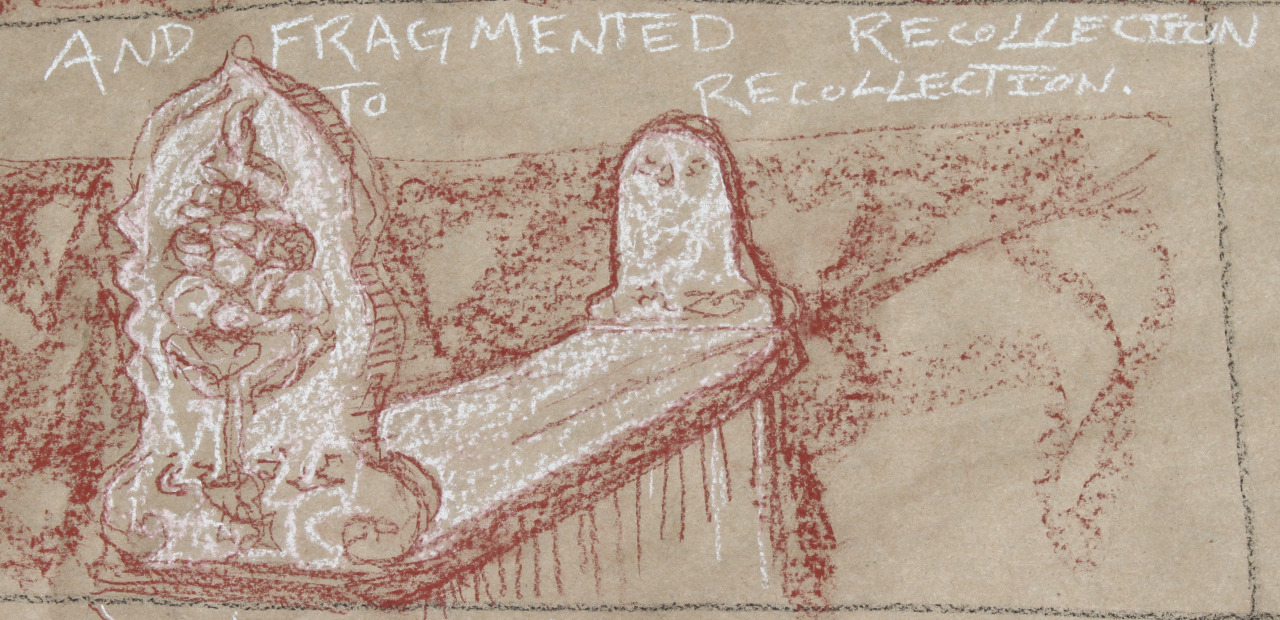 AND FRAGMENTED RECOLLECTION
TO RECOLLECTION.